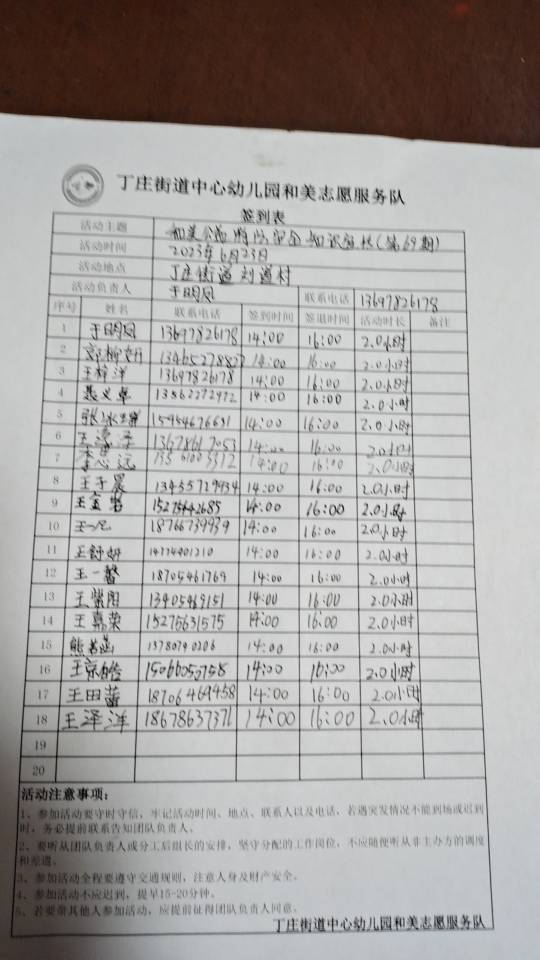 丁庄街道中心幼儿园和美志愿服务队
签到表
活动主题 和美公益 消防安全知识 (第69期)
活动时间 2023年6月23日
活动地点 丁庄街道刘道村
活动负责人 于明凤 联系电话 13697826178
序号 姓名 联系电话 签到时间 签退时间 活动时长 备注
1 于明凤 13697826178 14:00 16:00 2.0小时
2 14:00 16:00 2.0小时
3 王梓洋 13697826178 14:00 16:00 2.0小时
4 聂义卓 13562272972 14:00 16:00 2.0小时
5 15954676631 14:00 16:00 2.0小时
6 14:00 16:00 2.0小时
7 李思远 14:00 16:00 2.0小时
8 王子晨 14:00 16:00 2.0小时
9 15275442685 14:00 16:00 2.0小时
10 王一凡 18766739939 14:00 16:00 2.0小时
11 王舒妍 14:00 16:00 2.0小时
12 王一馨 18705461769 14:00 16:00 2.0小时
13 王紫阳 13405469151 14:00 16:00 2.0小时
14 王嘉荣 15275631575 14:00 16:00 2.0小时
15 14:00 16:00 2.0小时
16 15066050758 14:00 16:00 2.0小时
17 王田蕾 18706469458 14:00 16:00 2.0小时
18 王泽洋 18678637371 14:00 16:00 2.0小时
19
20
活动注意事项:
1、参加活动要守时守信,牢记活动时间、地点、联系人以及电话,若遇突发情况不能到场或迟到
时,务必提前联系告知团队负责人。
2、要听从团队负责人或分工后组长的安排,坚守分配的工作岗位,不应随便听从非主办方的调度
和差遣。
3、参加活动全程要遵守交通规则,注意人身及财产安全。
4、参加活动不应迟到,提早15-20分钟。
5、若要带其他人参加活动,应提前征得团队负责人同意。
丁庄街道中心幼儿园和美志愿服务队